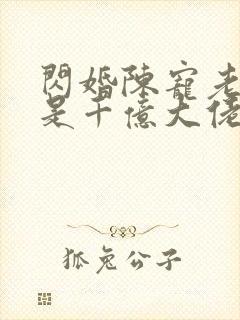 閃婚陳寵老
是千億大佬
狐兔公子